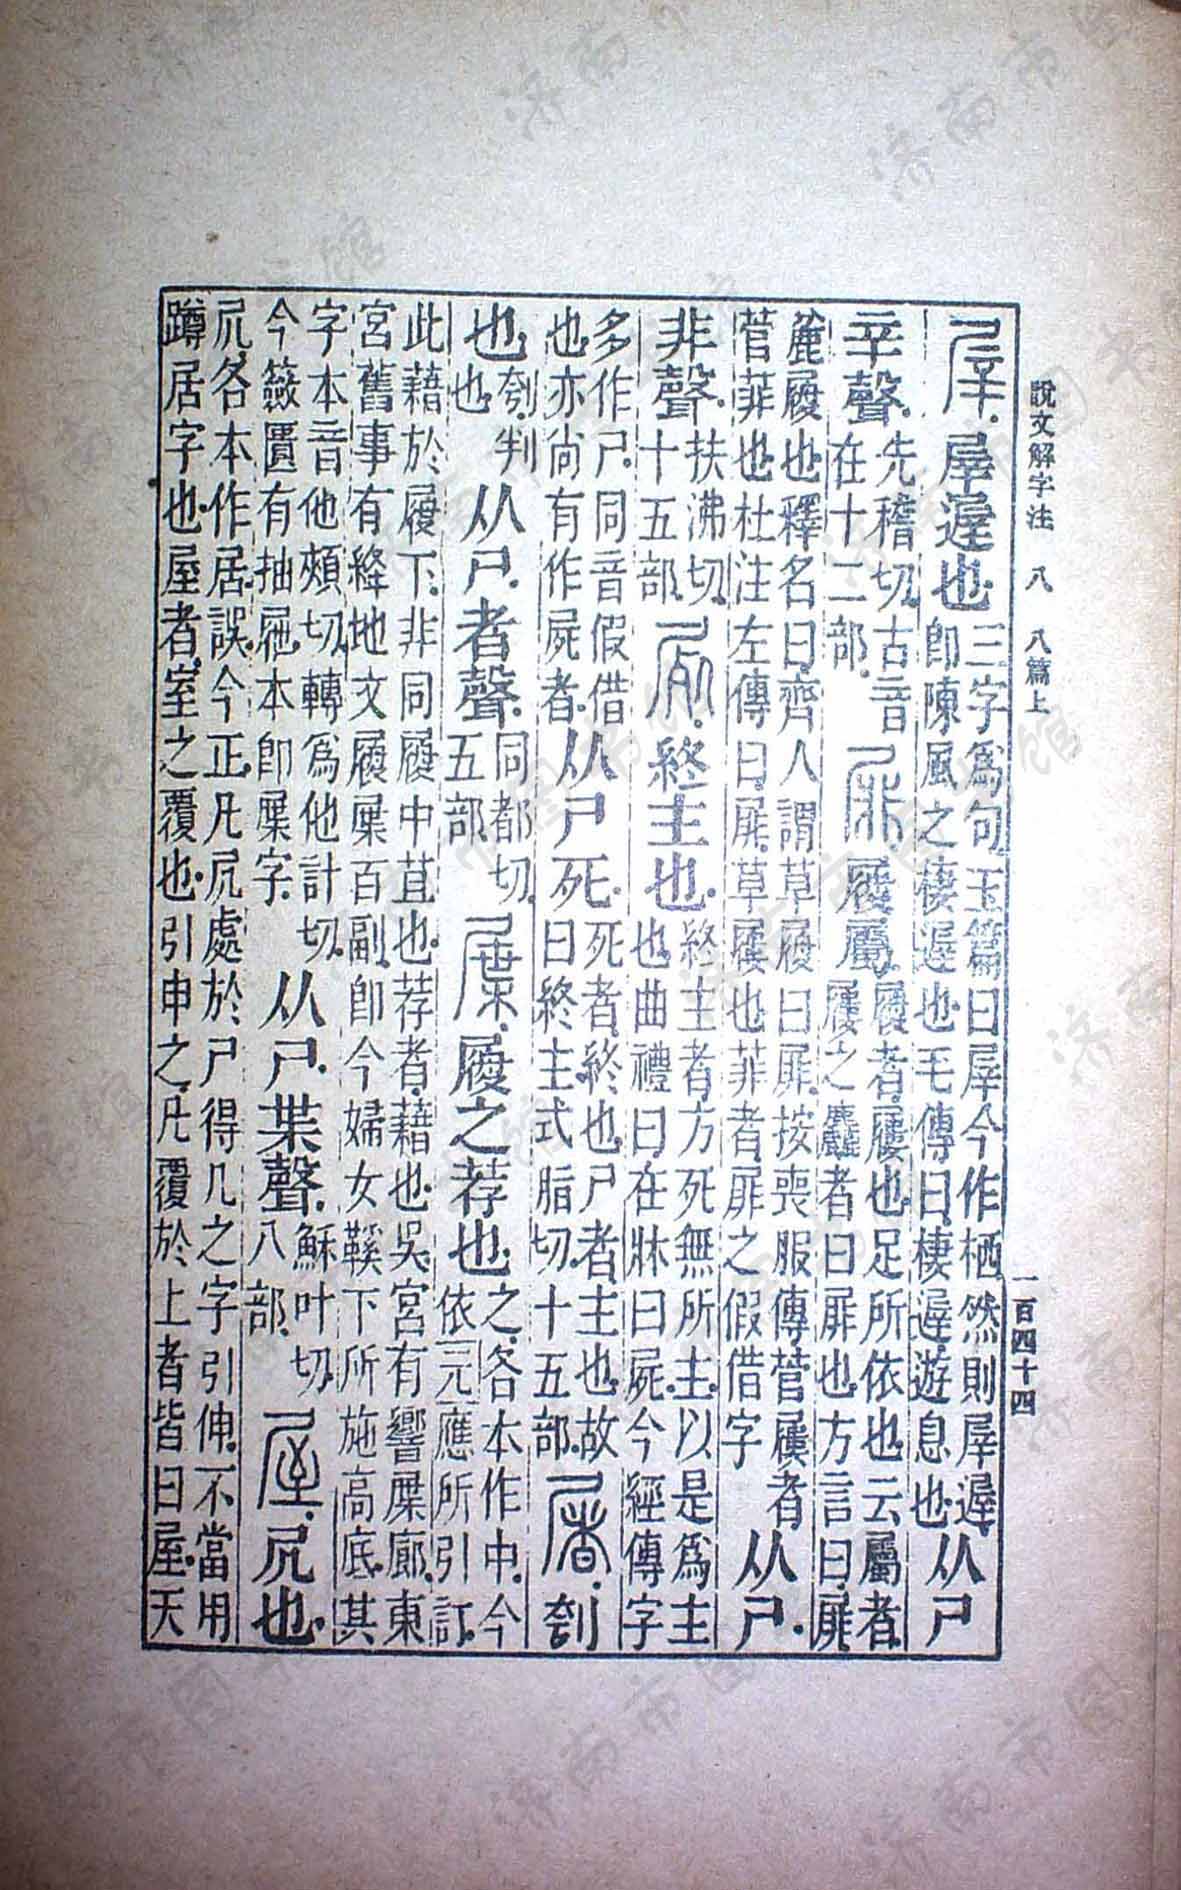 說文解字注 八 八篇上 一百四十四
屖屖遟也三字爲句玉篇曰屖今作栖然則屖遟卽陳風之棲遟也毛傳曰棲遟遊息也从尸
辛聲先稽切古音在十二部屝履屬履者屨也足所依也云屬者屨之麤者曰屝也方言曰屝
麄履也釋名曰齊人謂草履曰屝按喪服傳菅屨者菅菲也杜注左傳曰屝草屨也菲者屝之假借字从尸
非聲扶沸切十五部屍終主也終主者方死無所主以是爲主也曲禮曰在牀曰屍今經傳字
多作尸同音假借也亦尚有作屍者从尸死死者終也尸者主也故曰終主式脂切十五部屠刳
也刳判也从尸者聲同都切五部屟履之荐也之各本作中今依元應所引訂
此藉於履下非同履中苴也荐者藉也吳宮有響屟廊東宮舊事有絳地文履屟百副卽今婦女鞵下所施高底其
字本音他頰切轉爲他計切今籢匱有抽屜本卽屟字从尸枼聲穌叶切八部屋凥也
凥各本作居誤今正凡凥處於尸得几之字引伸不當用蹲居字也屋者室之覆也引申之凡覆於上者皆曰屋天
济南市图书馆